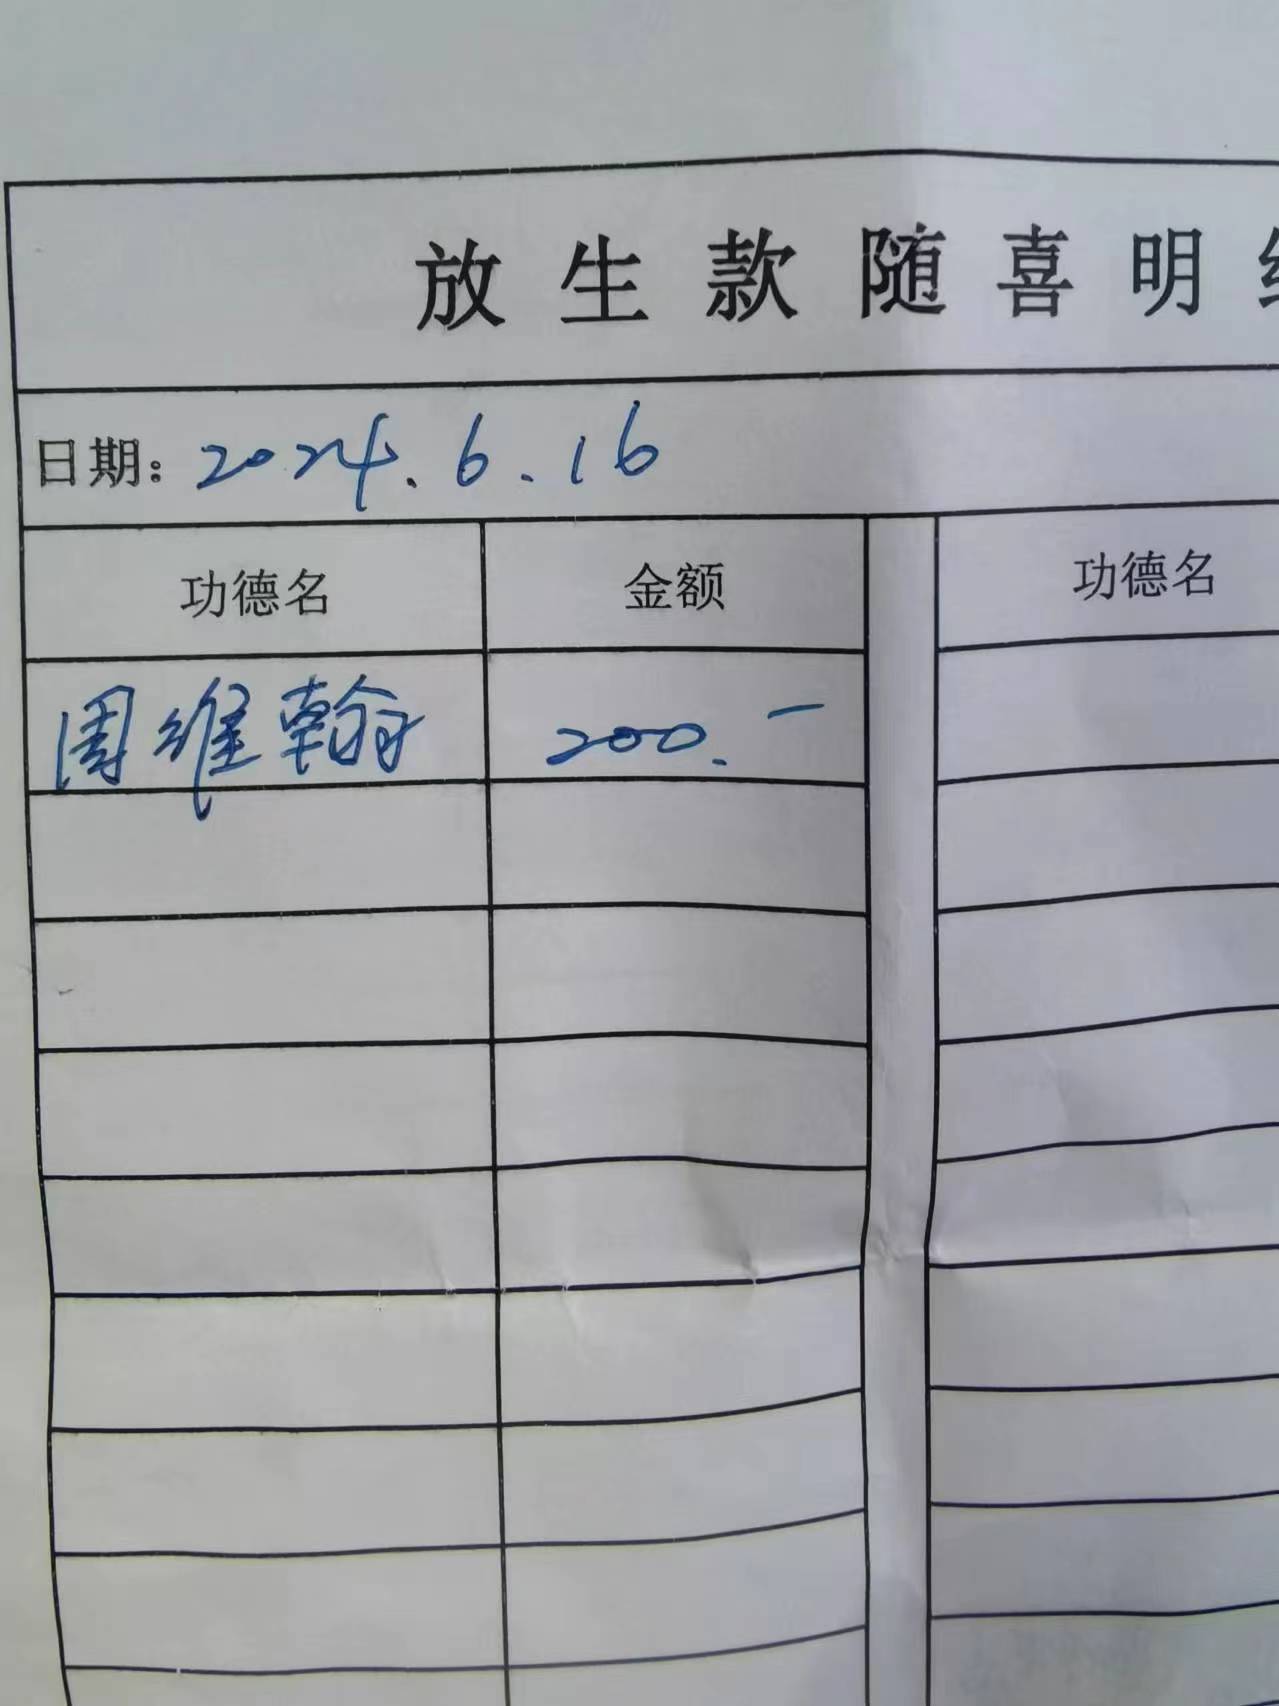 放生款随喜明
日期：2024.6.16
功德名 金额 功德名
周维翰 200.-